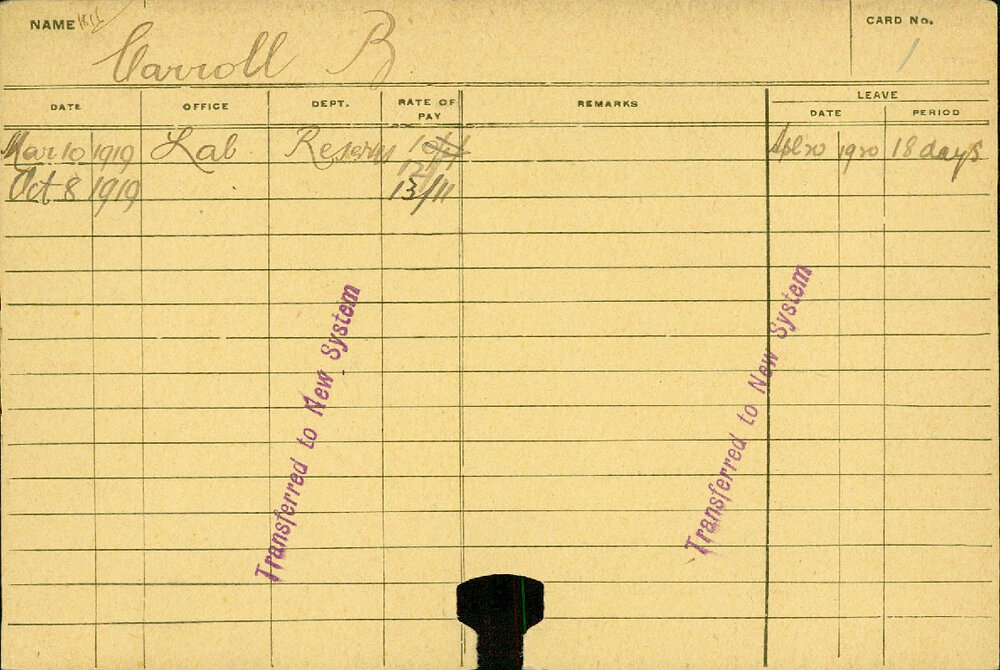 NAME
Carroll B
CARD No.
1
DATE OFFICE DEPT. RATE OF PAY REMARKS LEAVE
DATE PERIOD
Mar 10 1919 Lab 1920 18 days
12/
Oct 8 1919 13/11
Transferred to New System
Transferred to New System